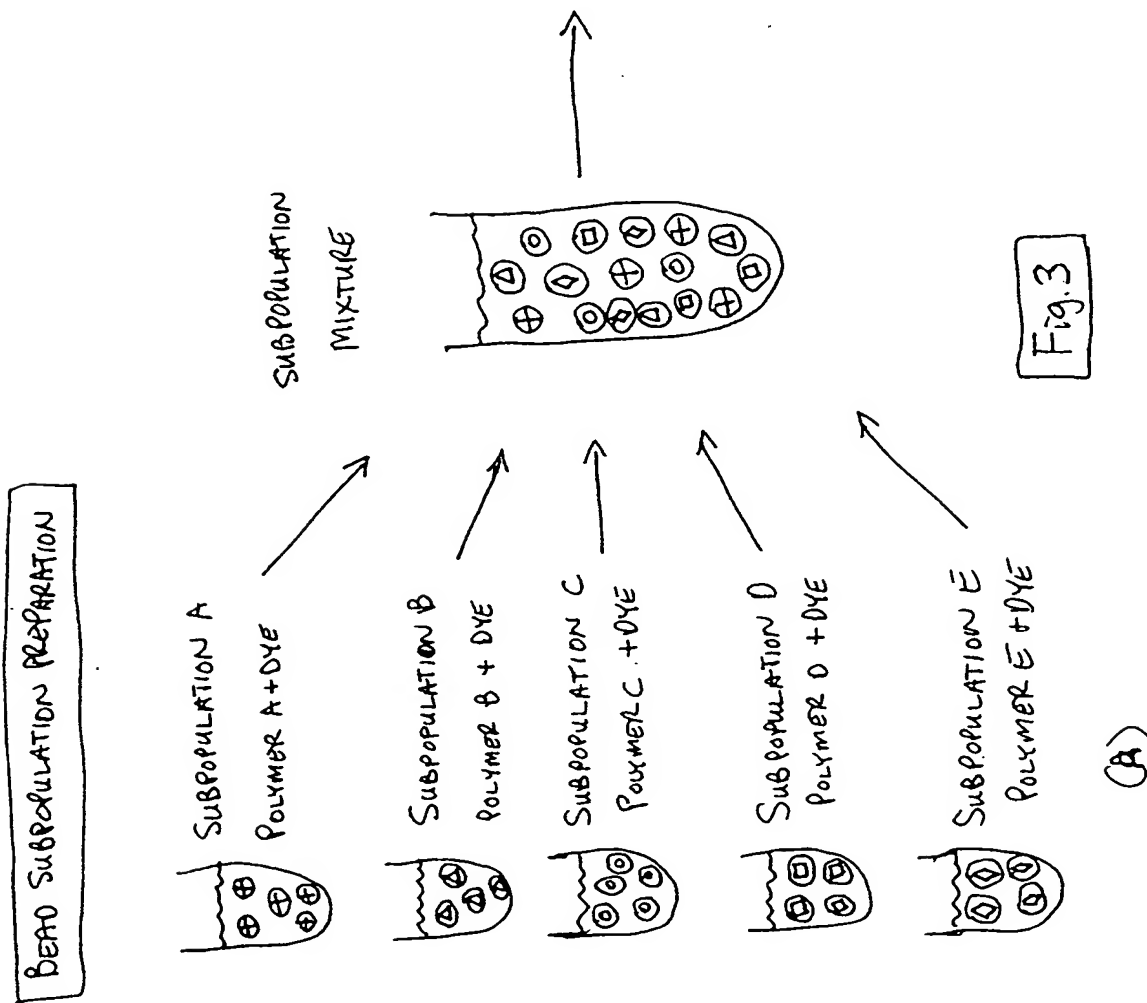 BEAD SUBPOPULATION PREPARATION
SUBPOPULATION A
POLYMER A+DYE
SUBPOPULATION B
POLYMER B + DYE
SUBPOPULATION C
POLYMER C . +DYE
SUBPOPULATION D
POLYMER D +DYE
SUBPOPULATION E
POLYMER E +DYE
(A)
SUBPOPULATION
MIXTURE
Fig.3